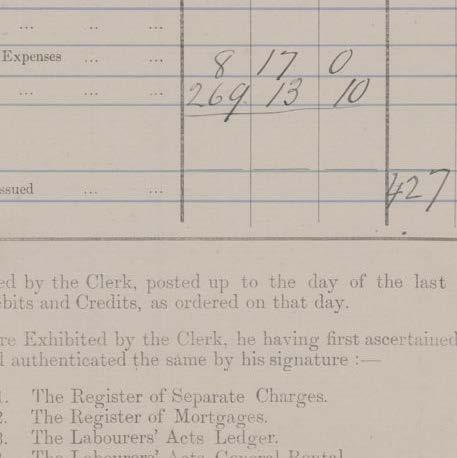 ... .. ...
Expenses ... ... 8 17 0
... ... ... 269 13 10
ssued ... ... 427
ed by the Clerk, posted up to the day of the last
ebits and Credits, as ordered on that day.
re Exhibited by the Clerk, he having first ascertained
d authenticated the same by his signature :—
1. The Register of Separate Charges.
2. The Register of Mortgages.
3. The Labourers' Acts Ledger.
The Labourers' Acts General Rental